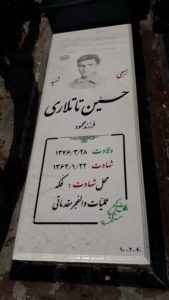 بسیجی شهید
حسین تاتلاری
فرزند محمود
ولادت ۱۳۴۶/۳/۲۸
شهادت ۱۳۶۲/۱/۲۲
محل شهادت : فکه
عملیات والفجر مقدماتی
۱۰-۲-۴۰